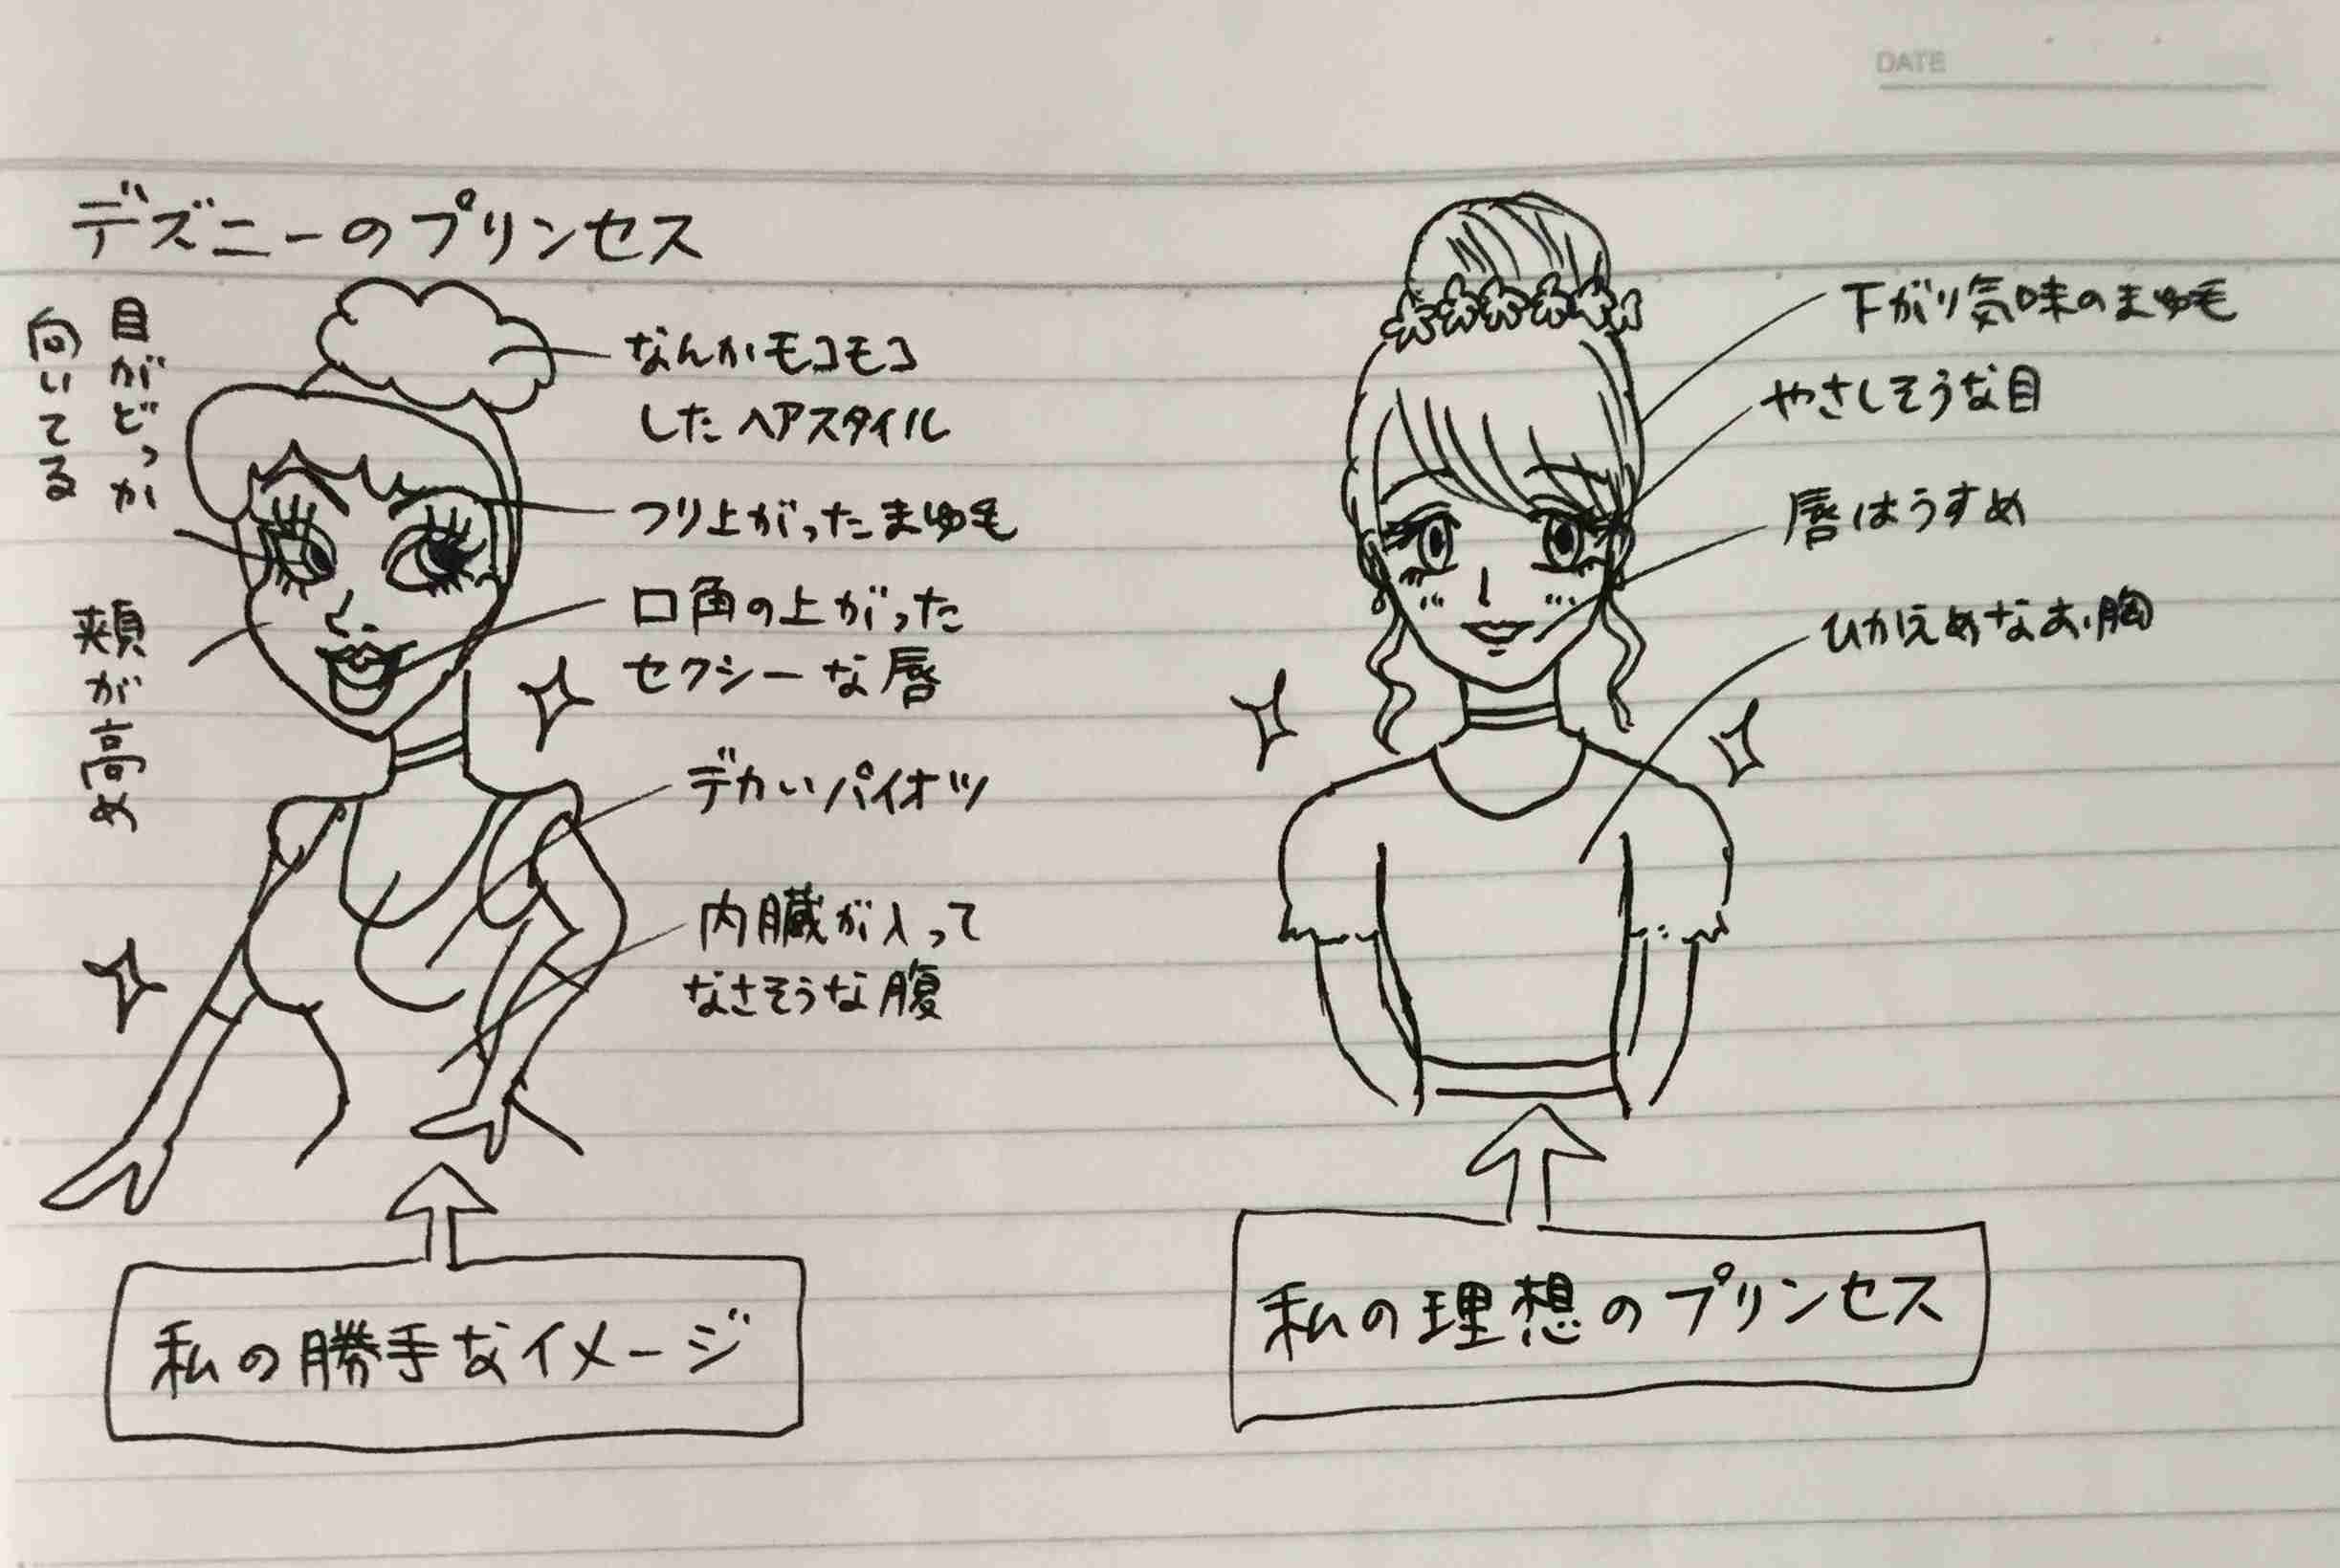 DATE
デズニーのプリンセス
目がどっか
向いてる
頬が高め
なんかモコモコ
したヘアスタイル
つり上がったまゆ毛
口角の上がった
セクシーな唇
デカいパイオツ
内臓が入って
なさそうな腹
私の勝手なイメージ
下がり気味のまゆ毛
やさしそうな目
唇はうすめ
ひかえめなお胸
私の理想のプリンセス